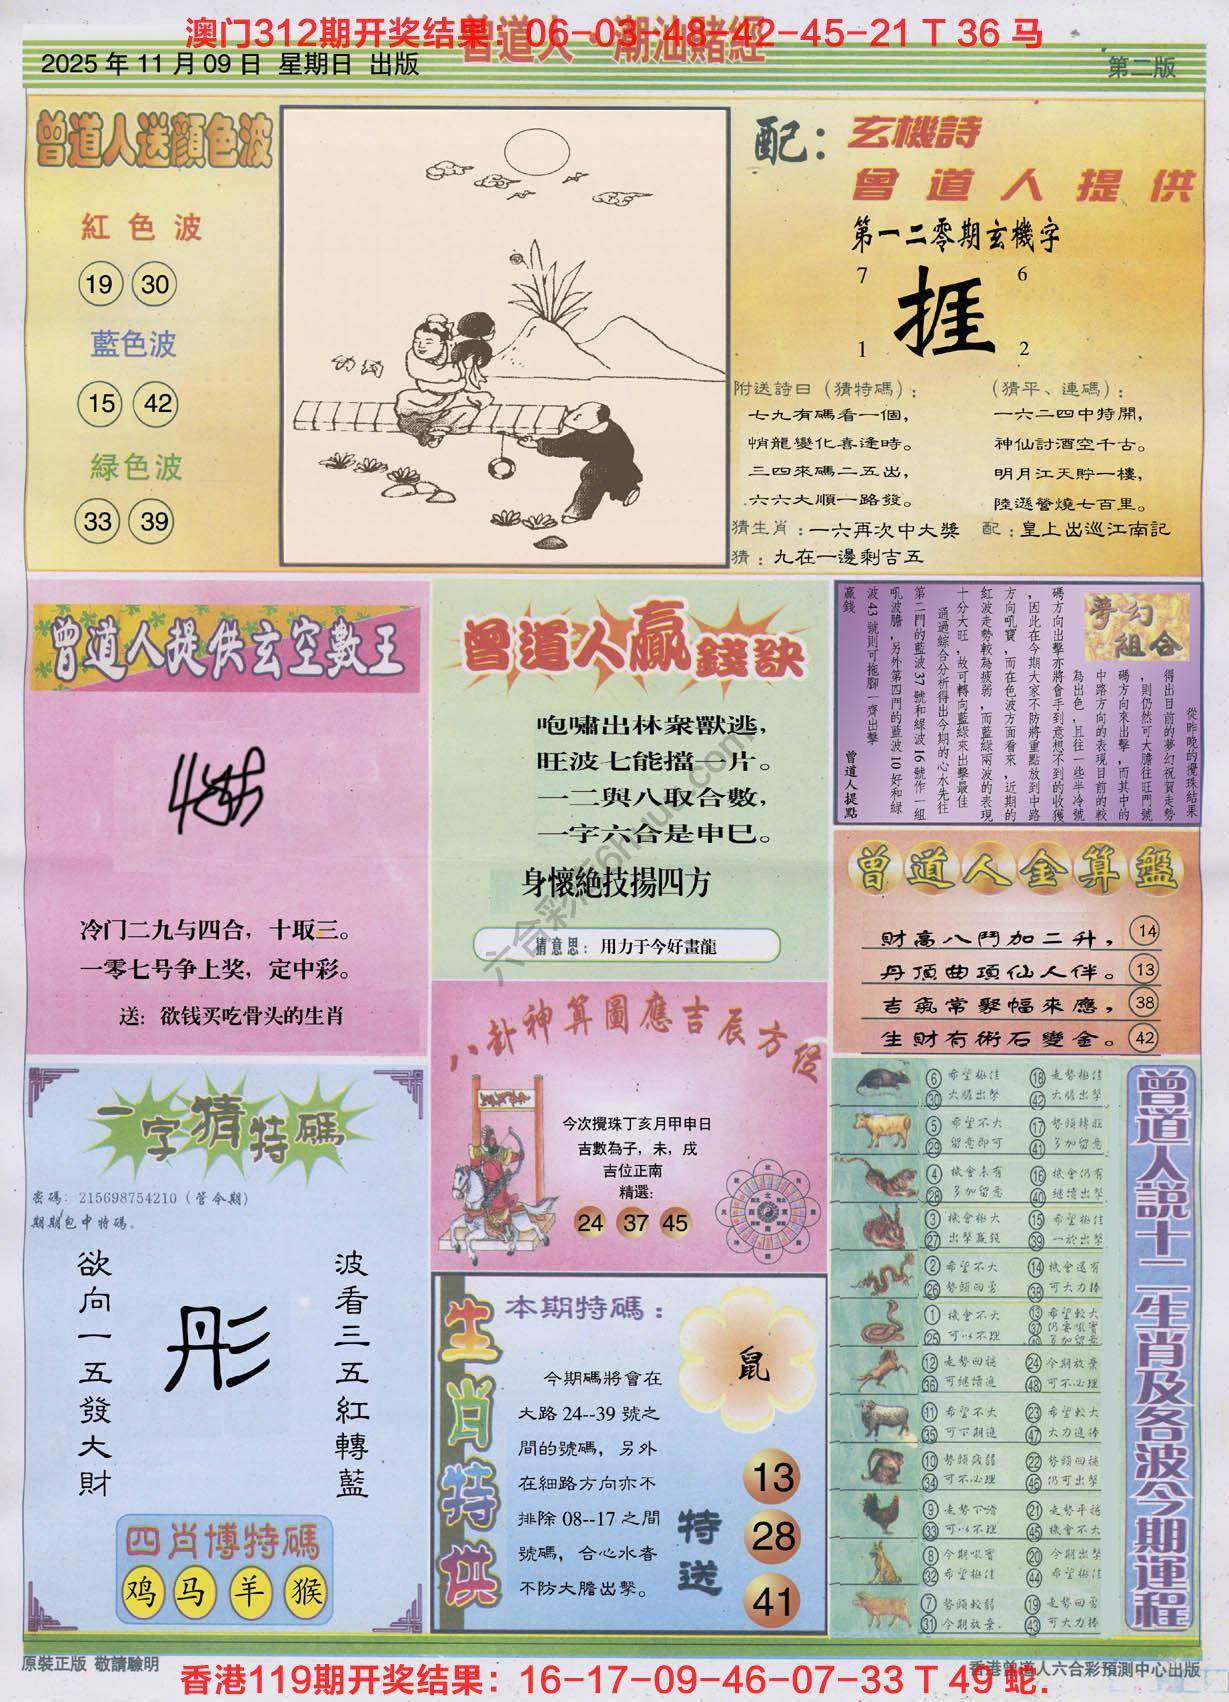 澳门312期开奖结果：06-03-48-42-45-21 T 36 马
曾道人·潮汕赌經
2025 年 11 月 09 日 星期日 出版
第二版
曾道人送顔色波
紅色波
19 30
藍色波
15 42
緑色波
33 39
配：玄機詩
曾道人提供
第一二零期玄機字
7 6
捱
1 2
附送詩日（猜特碼）：
七九有碼看一個，
悄龍變化喜逢時。
三四來碼二五出，
六六大順一路發。
（猜平、連碼）：
一六二四中特開，
神仙討酒空千古。
明月江天貯一樓，
陸遜營燒七百里。
猜生肖：一六再次中大獎 配：皇上出巡江南記
猜：九在一邊剩吉五
曾道人提供玄空數王
冷门二九与四合，十取三。
一零七号争上奖，定中彩。
送：欲钱买吃骨头的生肖
曾道人贏錢訣
咆嘯出林衆獸逃，
旺波七能擋一片。
一二與八取合數，
一字六合是申巳。
身懷絶技揚四方
猜意思：用力于今好畫龍
夢幻組合
從昨晚的攪珠結果
得出目前的夢幻祝賀走勢
，則仍然可大膽往旺門號
碼方向來出擊，而其中的
中路方向的表現目前的較
為出色，且往一些半冷號
碼方向出擊亦將會手到意想不到的收獲
，因此在今期大家不防將重點放到中路
方向吼寶，而在色波方面看來，近期的
紅波走勢較為疲弱，而藍綠兩波的表現
十分大旺，故可轉向藍綠來出擊最佳
通過綜合分析得出今期的心水先往
第二門的藍波37號和綠波16號作一組
吼波膽，另外第四門的藍波10好和綠
波43號則可拖腳一齊出擊
贏錢
曾道人提點
曾道人金算盤
財高八鬥加二升， 14
丹頂曲項仙人伴。 13
吉氣常聚幅來應， 38
生財有術石變金。 42
八卦神算圖應吉辰方位
今次攪珠丁亥月甲申日
吉數為子，未，戌
吉位正南
精選：
24 37 45
一字猜特碼
密碼：215698754210（管今期）
期期包中特碼。
欲向一五發大財
彤
波看三五紅轉藍
四肖博特碼
鸡 马 羊 猴
生肖特供
本期特碼：
鼠
今期碼將會在
大路 24--39 號之
間的號碼，另外
在細路方向亦不
排除 08--17 之間
號碼，合心水者
不防大膽出擊。
特送
13
28
41
曾道人説十二生肖及各波今期運程
6 希望極佳 18 走勢極佳
30 大膽出擊 42 大膽出擊
5 希望不大 17 勢頭轉旺
29 留意即可 41 多加留意
4 機會未有 16 機會仍有
28 多加留意 40 繼續出擊
3 機會極大 15 希望極佳
27 出擊贏錢 39 一於出擊
2 希望不大 14 機會還有
26 勢頭回雲 38 可大力捧
1 機會不大 13 希望較大
25 可以不理 37 仍要吼實
49 多加留意
12 走勢回穩 24 今期放棄
36 可繼續追 48 可不必理
11 希望不大 23 希望較大
35 可下期追 47 大力追捧
10 勢頭淺弱 22 勢頭回穩
34 可不必理 46 仍可出擊
9 走勢下滑 21 走勢平穩
33 可以不理 45 機會不大
8 今期吼實 20 今期出擊
32 希望極佳 44 希望極佳
7 勢頭較弱 19 走勢回雲
31 今期放棄 43 可大力捧
原裝正版 敬請驗明
香港曾道人六合彩預測中心出版
香港119期开奖结果：16-17-09-46-07-33 T 49 蛇.